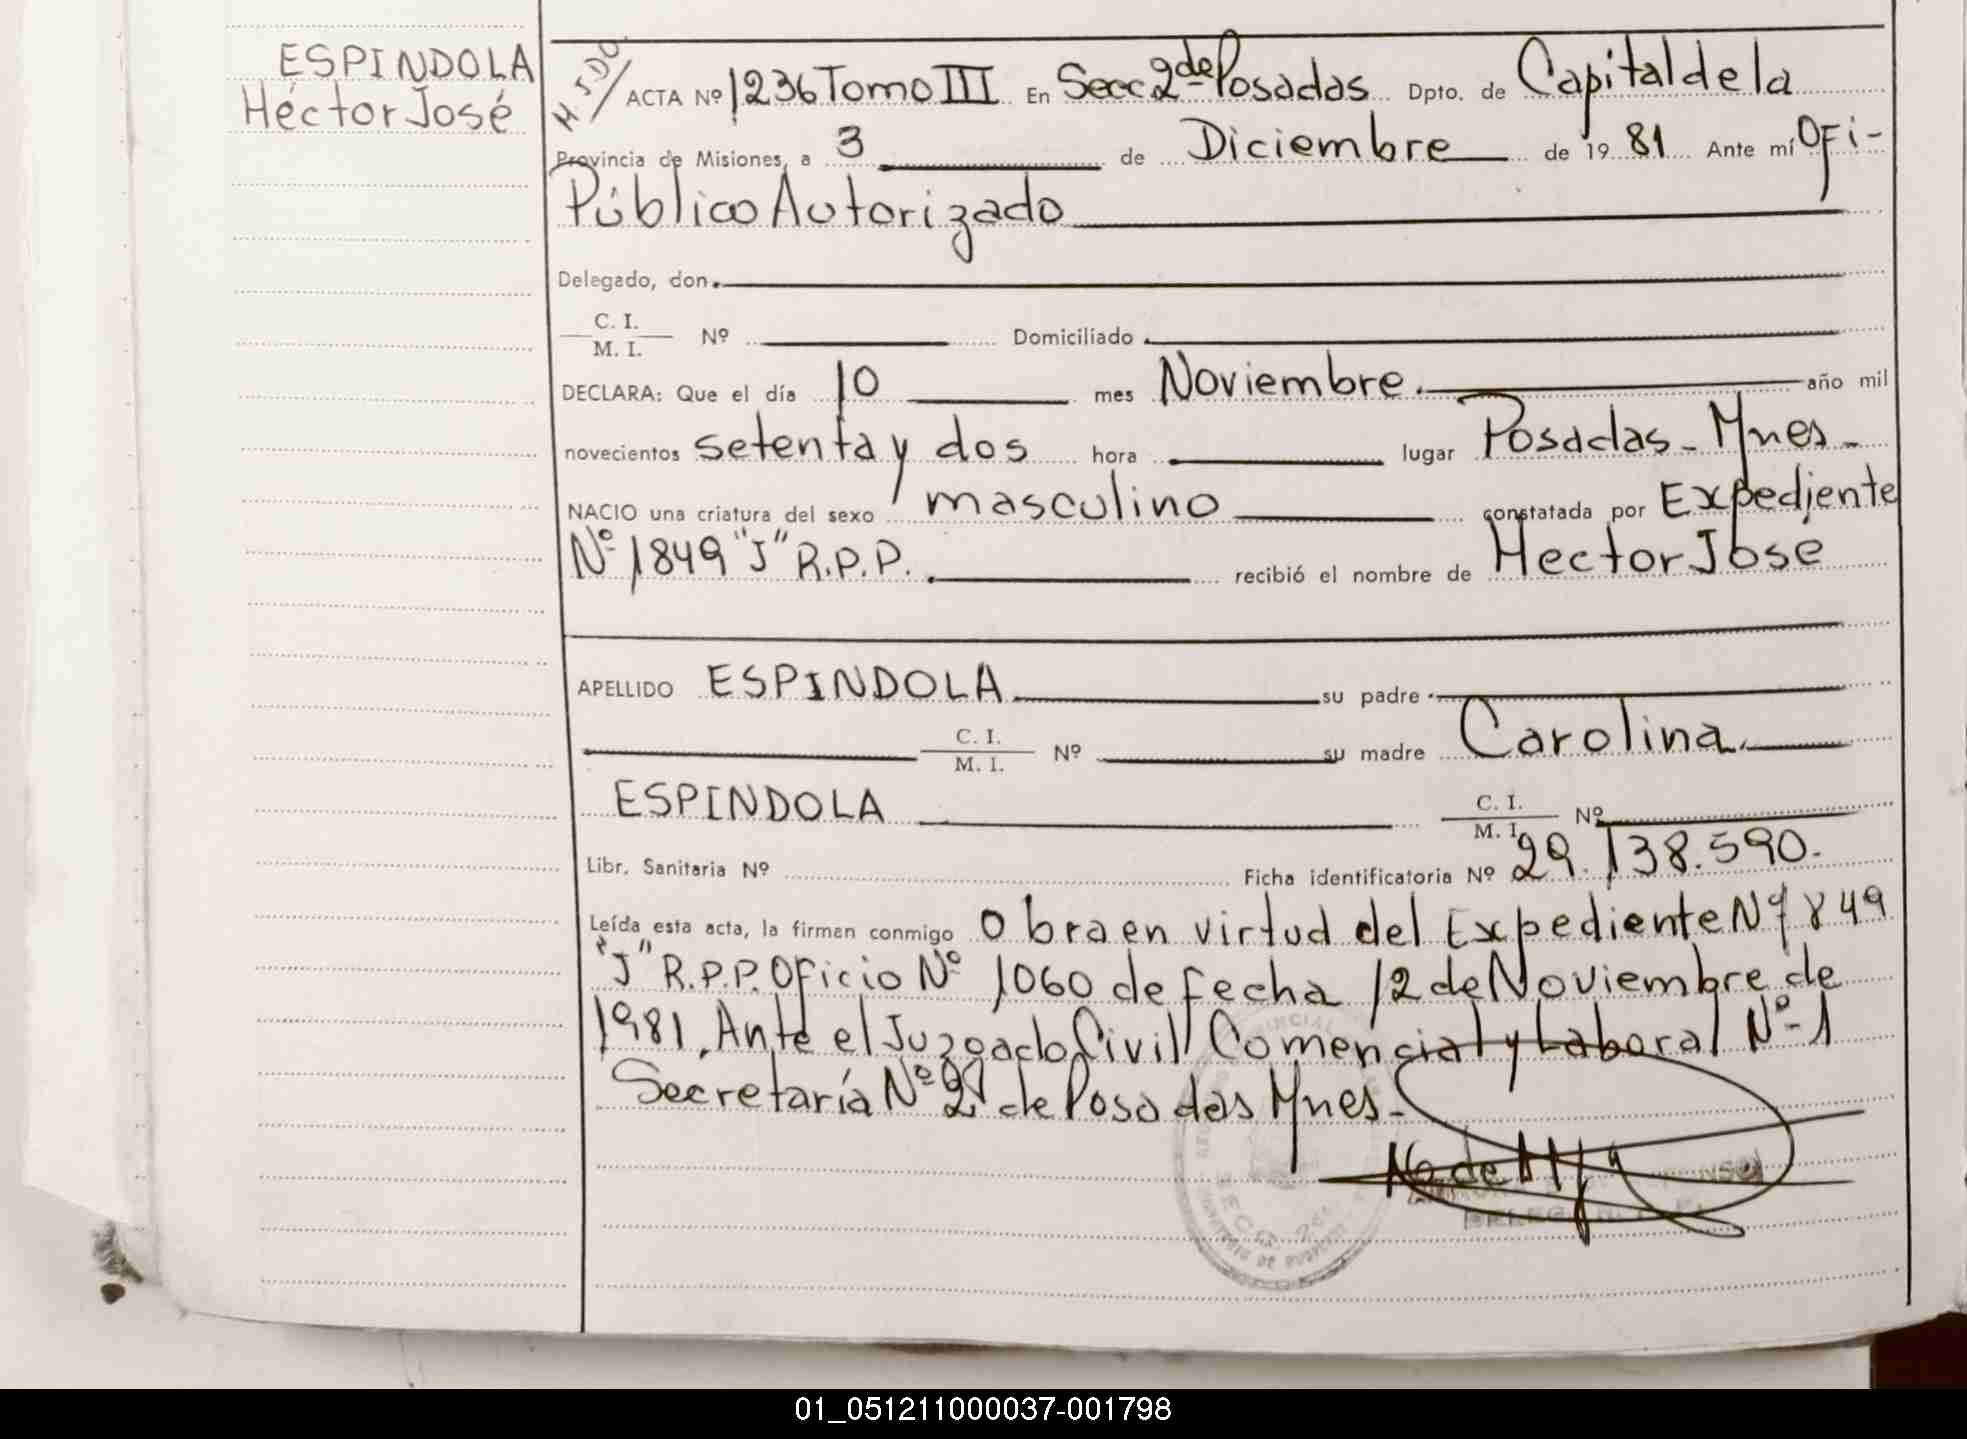 ESPINDOLA
Héctor José
M. J. DO.
ACTA Nº 1236 Tomo III En Secc 2ª de Posadas Dpto. de Capital de la
Provincia de Misiones, a 3 de Diciembre de 1981 Ante mí Ofi-
Público Autorizado
Delegado, don
C. I.
M. I.
Nº Domiciliado
DECLARA: Que el día 10 mes Noviembre. año mil
novecientos setenta y dos hora lugar Posadas - Mnes -
NACIO una criatura del sexo masculino constatada por Expediente
Nº 1849 "J" R.P.P. recibió el nombre de Hector José
APELLIDO ESPINDOLA su padre
C. I.
M. I.
Nº su madre Carolina
ESPINDOLA
C. I.
M. I.
Nº
Libr. Sanitaria Nº Ficha identificatoria Nº 29.138.590.
Leída esta acta, la firman conmigo Obra en virtud del Expediente Nº 1849
"J" R.P.P. Oficio Nº 1060 de fecha 12 de Noviembre de
1981. Ante el Juzgado Civil Comencial y Laboral Nº 1
Secretaría Nº 2 de Posadas Mnes -
SECC. 2da
01_051211000037-001798